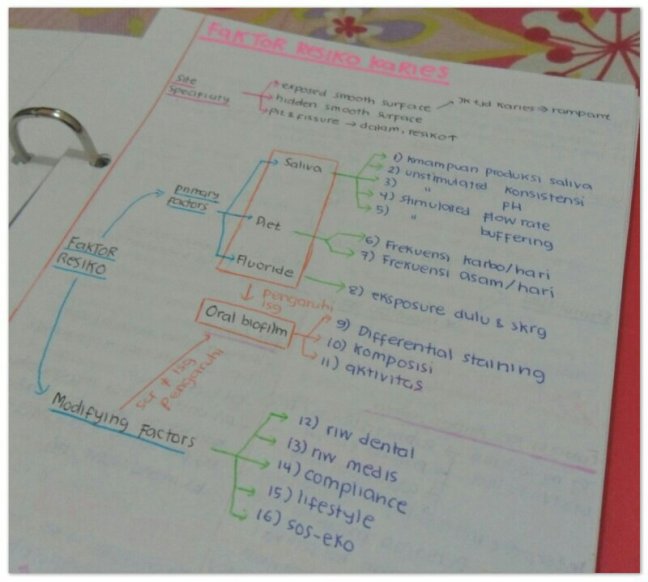 FAKTOR RESIKO KARIES
site specificity
exposed smooth surface → jk tjd karies → rampant
hidden smooth surface
pit & fissure → dalam, resiko↑
FAKTOR RESIKO
primary factors
Saliva
1) kmampuan produksi saliva
2) unstimulated konsistensi
3) " pH
4) stimulated flow rate
5) " buffering
Diet
6) Frekuensi karbo/hari
7) Frekuensi asam/hari
Fluoride
8) eksposure dulu & skrg
pengaruhi lsg
Oral biofilm
9) Differential staining
10) komposisi
11) aktivitas
scr t lsg pengaruhi
Modifying Factors
12) riw dental
13) riw medis
14) compliance
15) lifestyle
16) sos-eko